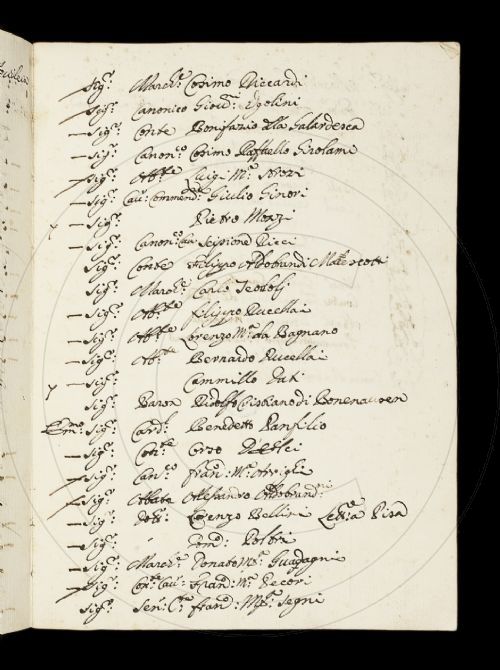 Sig.r March.e Cosimo Riccardi
Sig.r Canonico Giov.n: Ugolini
Sig.r Conte Bonifazio della Gherardesca
Sig.r Canon.co Cosimo Raffaello Girolami
Sig.r Ab.te Luigi M.a Strozi
Sig.r Cav: Commend.r Giulio Ginori
Sig.r Pietro Mozzi
Sig.r Canon.co Cav: Scipione Ricci
Sig.r Conte Filippo Aldobrandi Mattescotti
Sig.r March.e Carlo Teodoli
Sig.r Ab.te Filippo Rucellai
Sig.r Ab.te Lorenzo M.a da Bagnano
Sig.r Ab.te Bernardo Rucellai
Sig.r Cammillo Dati
Sig.r Baron Ridolfo Cristiano di
Em.o Sig.r Card.l Benedetto Panfilio
Sig.r Con.te Orso D'Elci
Sig.r Can.co Fran.o: M.a Arrighi
Sig.r Abate Alessandro Aldobrand.ni
Sig.r Dott.r Lorenzo Bellini Lett.e a Pisa
Sig.r
Sig.r March.e Donato M.a Guadagni
Sig.r Con.te Cav: Fran: M.a Pecori
Sig.r Sen: Fran: M.a Segni